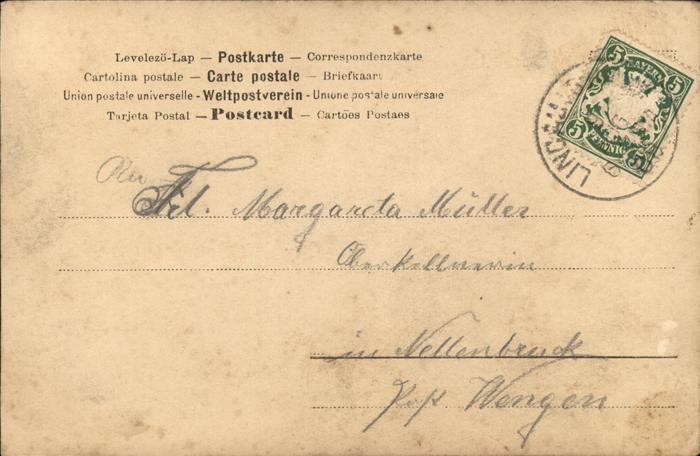 Levelezö-Lap — Postkarte — Correspondenzkarte
Cartolina postale — Carte postale — Briefkaart
Union postale universelle - Weltpostverein - Unione postale universale
Tarjeta Postal — Postcard — Cartões Postaes
5 BAYERN 5
5 PFENNIG 5
LINDAU
An
Frl. Margareta Müller
Oberkellnerin
in Nellenbruck
Post Wengen